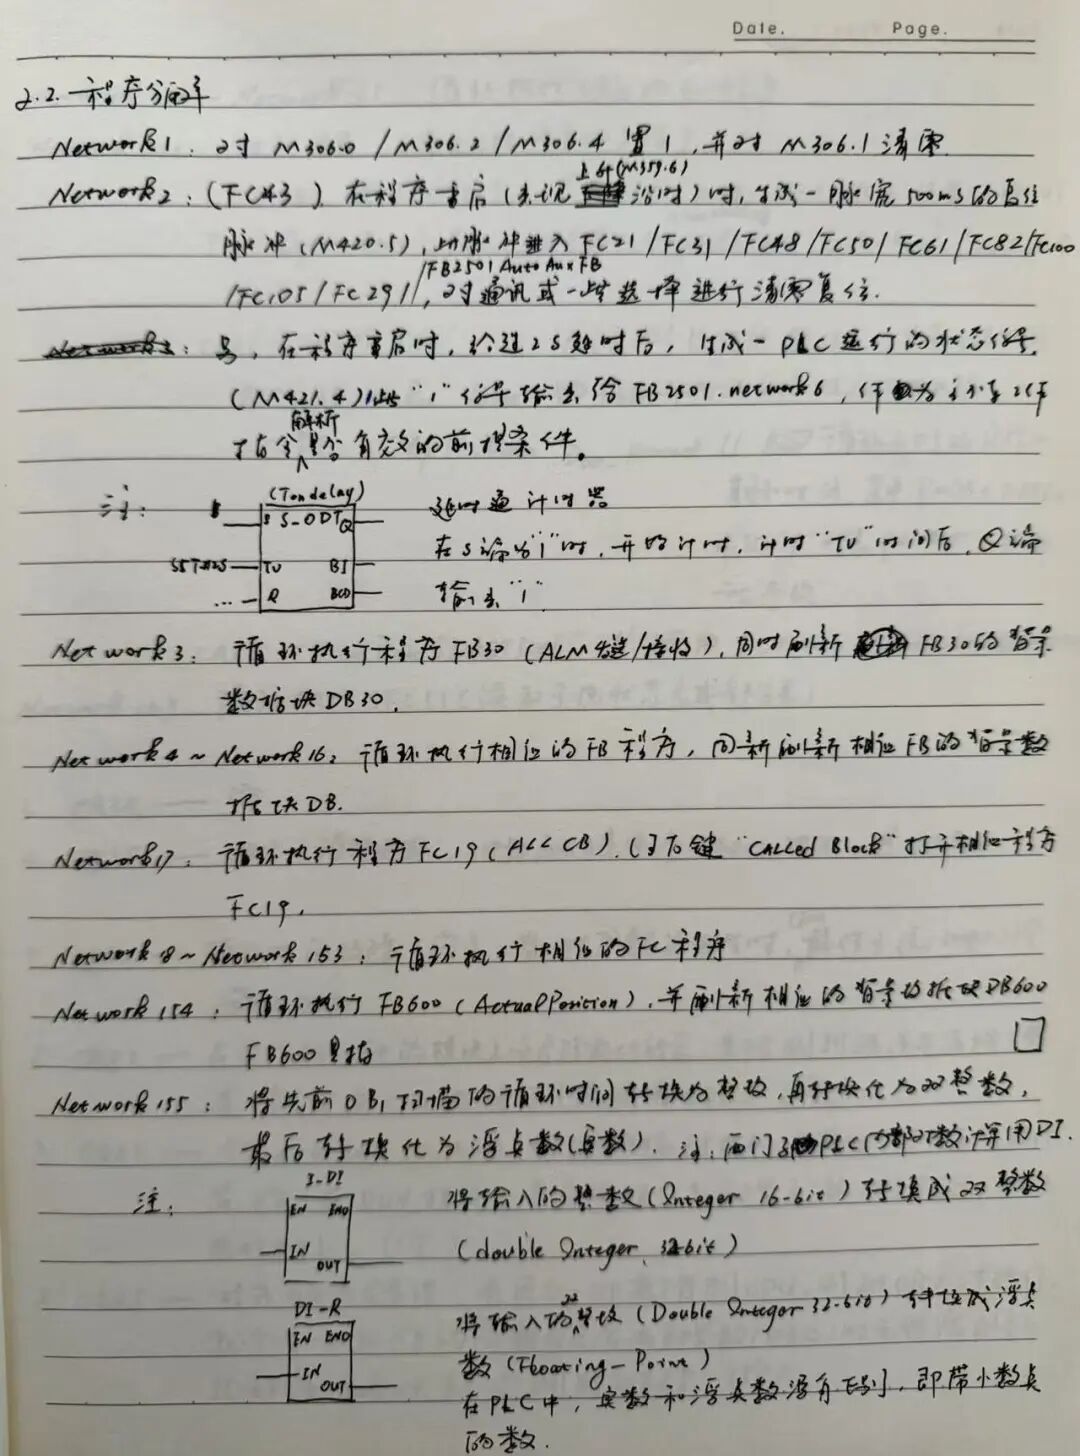 Date. Page.
2.2. 程序分解
Network1: 对 M306.0 / M306.2 / M306.4 置1, 并对 M306.1 清零
上升(M359.6)
Network2: (FC43) 在程序重启(出现 沿时)时, 生成一脉宽500ms的复位
脉冲 (M420.5), 此脉冲进入 FC21 / FC31 / FC48 / FC50 / FC61 / FC82 / FC100
/FB2501 Auto Aux FB
/FC105 / FC291/, 对通讯或一些选择进行清零复位.
Network3: 另, 在程序重启时, 经过2S延时后, 生成一PLC运行的状态信号
(M421.4) 此"1"信号输出给 FB2501.network6, 作为主令
解析
指令是否有效的前提条件。
注: (Ton delay) 延时通计时器
S S_ODT Q
在S端为"1"时, 开始计时, 计时"TV"时间后, Q端
S5T#2S TV BI
... R BCD 输出"1"
Network3: 循环执行程序 FB30 (ALM发送/接收), 同时刷新 FB30的背景
数据块DB30.
Network4 ~ Network16: 循环执行相应的FB程序, 同新刷新相应FB的背景数
据块DB.
Network17: 循环执行程序FC19 (ALL CB). (可右键 "CALLed Block" 打开相应程序
FC19.
Network 8 ~ Network 153: 循环执行相应的FC程序
Network 154: 循环执行 FB600 (Actual Position), 并刷新相应的背景数据块DB600
FB600是指
Network155: 将先前OB1扫描的循环时间转换为整数, 再转换化为双整数,
最后转换化为浮点数(实数). 注: 西门子PLC内部对数计算用DI.
注: I-DI 将输入的整数 (Integer 16-bit) 转换成双整数
EN ENO
IN OUT (double Integer 32bit)
DI-R 将输入的双整数 (Double Integer 32-bit) 转换成浮点
EN ENO
IN OUT 数 (Floating-Point)
在PLC中, 实数和浮点数没有区别, 即带小数点
的数.